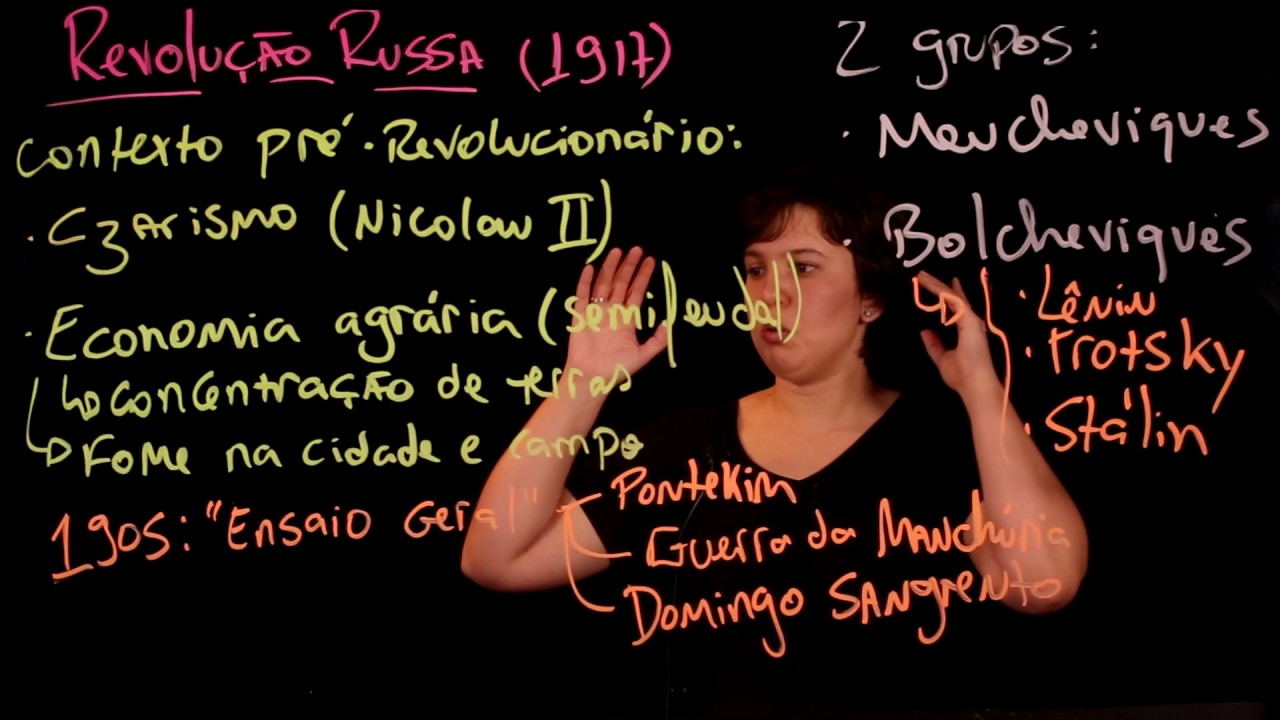 Revolução Russa (1917)
Contexto pré-Revolucionário:
· Czarismo (Nicolau II)
· Economia agrária (semifeudal)
↳ Concentração de terras
↳ Fome na cidade e campo
1905: "Ensaio Geral"
Pontekim
Guerra da Manchúria
Domingo Sangrento
2 grupos:
· Mencheviques
· Bolcheviques
↳ · Lênin
· Trotsky
· Stálin